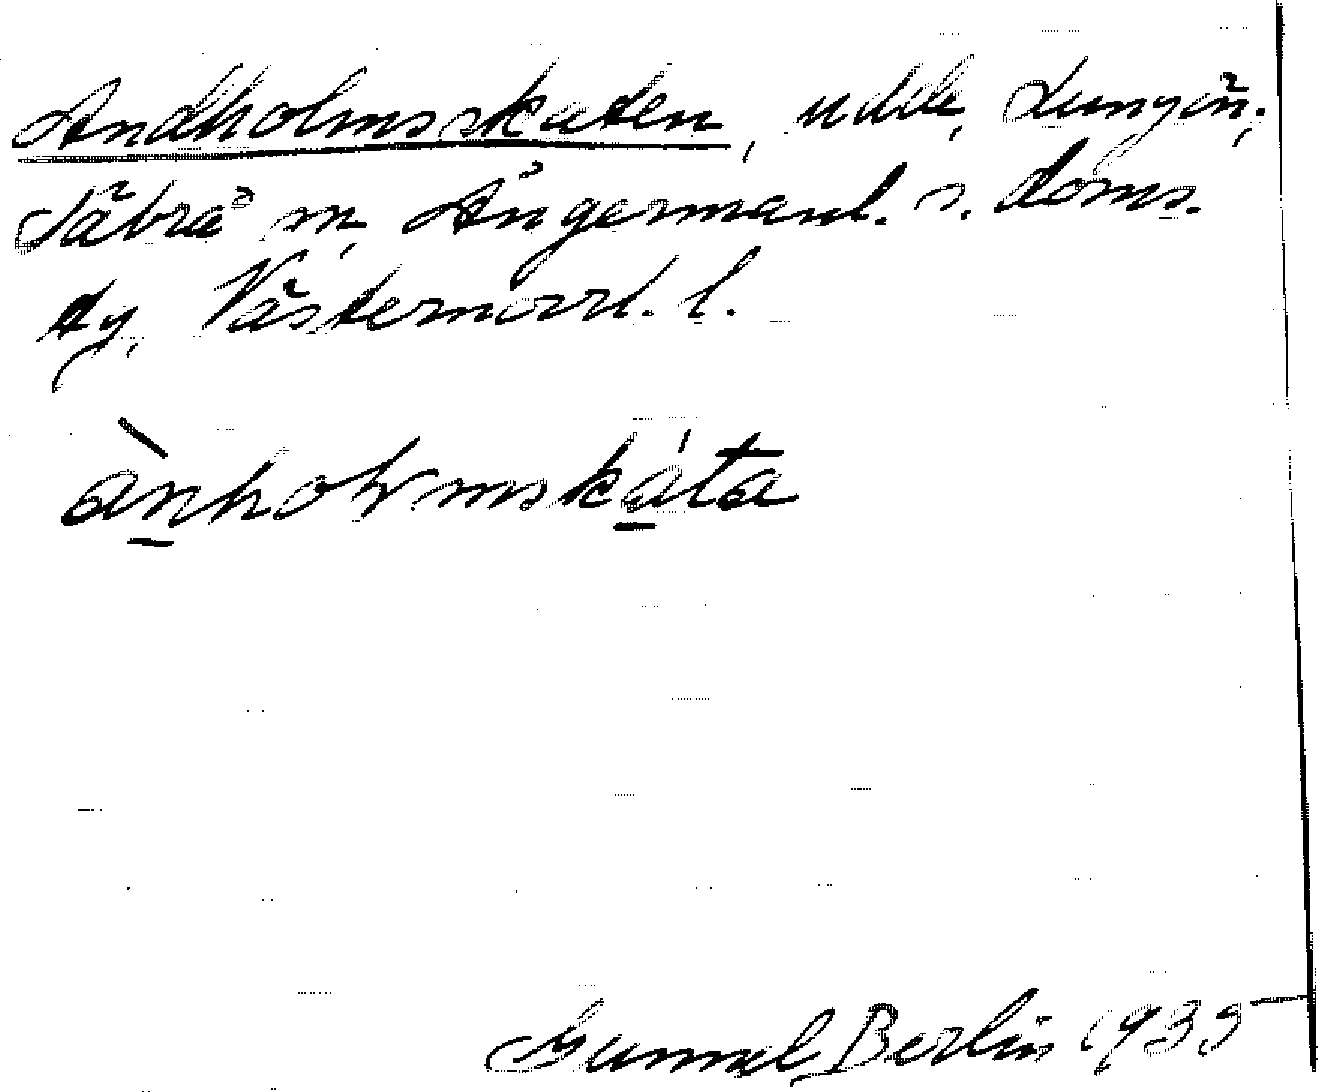 Andholmsskaten, udde, Lungön,
Säbrå sn, Ångermanl. s. doms.
Ay, Västernorrl. l.
ànholmskáta
Gunnel Berlin 1935